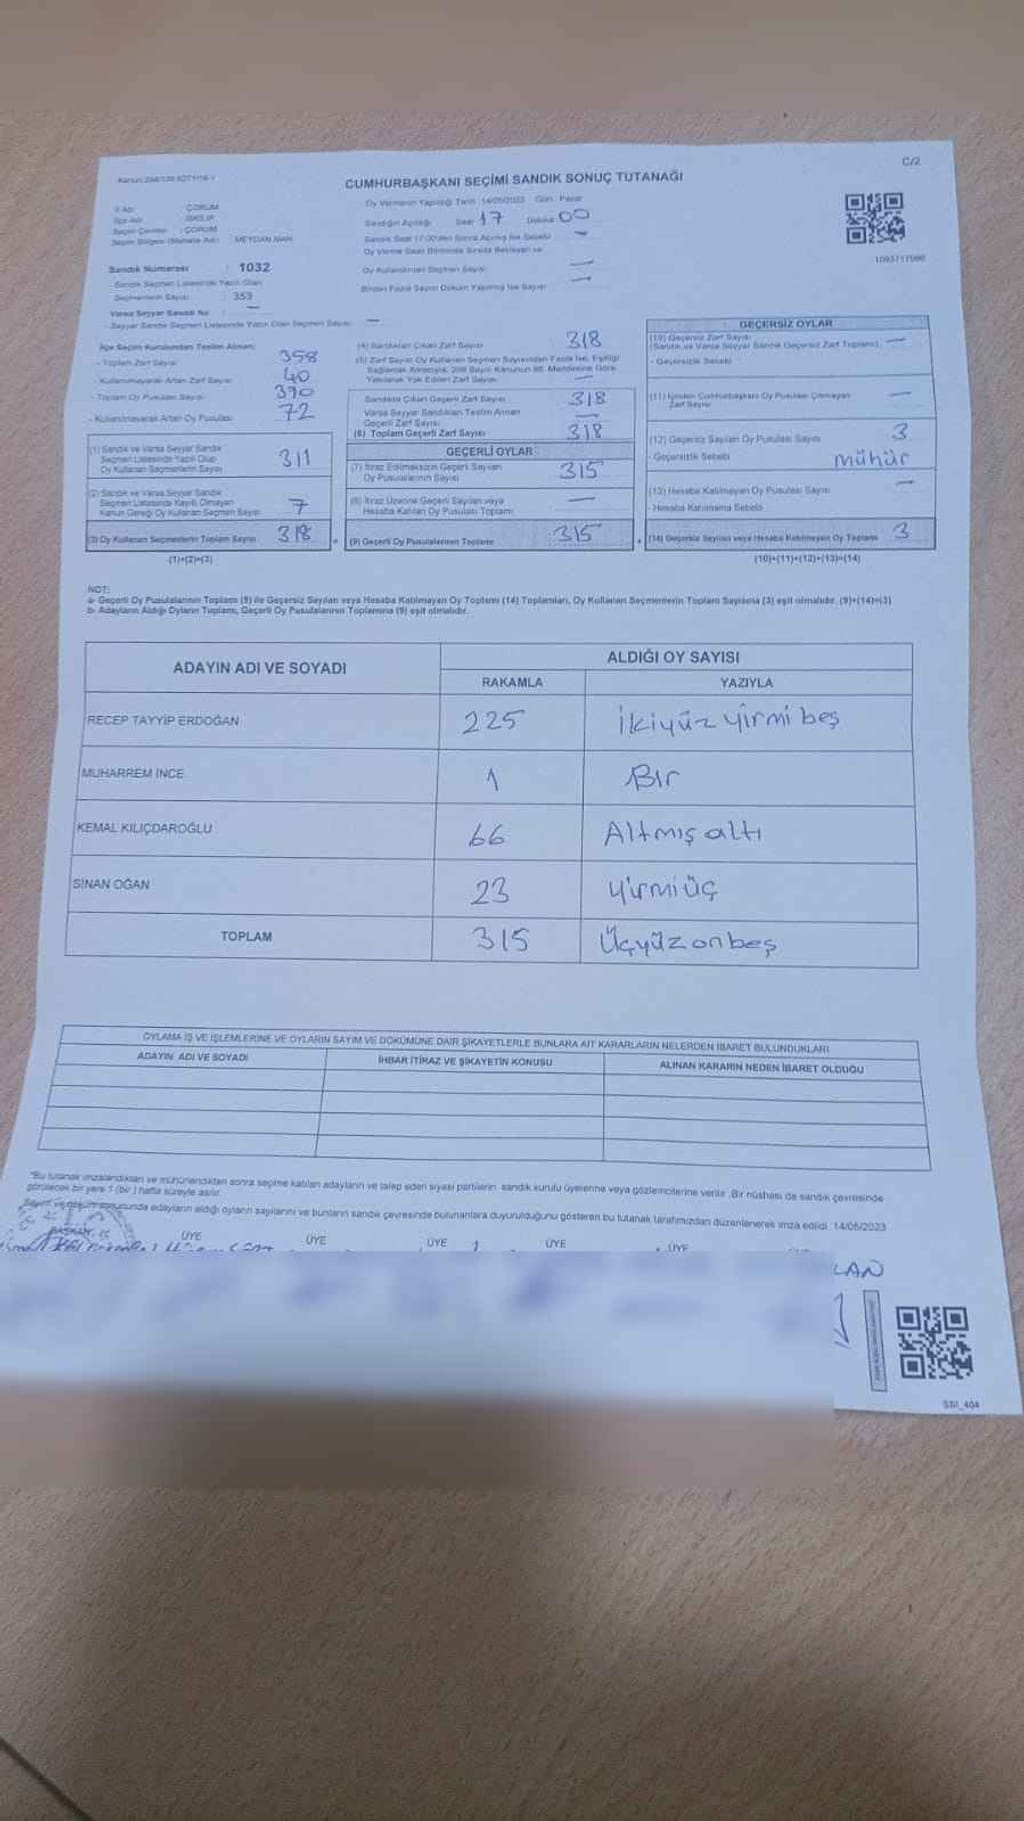 C/2
CUMHURBAŞKANI SEÇİMİ SANDIK SONUÇ TUTANAĞI
İl Adı : ÇORUM
İlçe Adı : İSKİLİP
Seçim Çevresi : ÇORUM
Seçim Bölgesi (Mahalle Adı) : MEYDAN MAH.
Sandık Numarası : 1032
Sandık Seçmen Listesinde Yazılı Olan
Seçmenlerin Sayısı : 353
Varsa Seyyar Sandık No : —
- Seyyar Sandık Seçmen Listesinde Yazılı Olan Seçmen Sayısı : —
Oy Vermenin Yapıldığı Tarih : 14/05/2023 Gün : Pazar
Sandığın Açıldığı Saat : 17 Dakika : 00
Sandık Saat 17:00'den Sonra Açılmış İse Sebebi —
Oy Verme Saati Bitiminde Sırada Bekleyen ve
Oy Kullandırılan Seçmen Sayısı —
Birden Fazla Sayım Döküm Yapılmış İse Sayısı —
İlçe Seçim Kurulundan Teslim Alınan;
- Toplam Zarf Sayısı 358
- Kullanılmayarak Artan Zarf Sayısı 40
- Toplam Oy Pusulası Sayısı 390
- Kullanılmayarak Artan Oy Pusulası 72
(1) Sandık ve Varsa Seyyar Sandık
Seçmen Listesinde Yazılı Olup
Oy Kullanan Seçmenlerin Sayısı 311
(2) Sandık ve Varsa Seyyar Sandık
Seçmen Listesinde Kayıtlı Olmayan
Kanun Gereği Oy Kullanan Seçmen Sayısı 7
(3) Oy Kullanan Seçmenlerin Toplam Sayısı 318
(1)+(2)=(3)
(4) Sandıktan Çıkan Zarf Sayısı 318
(5) Zarf Sayısı Oy Kullanan Seçmen Sayısından Fazla İse, Eşitliği
Sağlamak Amacıyla, 298 Sayılı Kanunun 98. Maddesine Göre
Yakılarak Yok Edilen Zarf Sayısı —
Sandıkta Çıkan Geçerli Zarf Sayısı 318
Varsa Seyyar Sandıktan Teslim Alınan
Geçerli Zarf Sayısı —
(6) Toplam Geçerli Zarf Sayısı 318
GEÇERLİ OYLAR
(7) İtiraz Edilmeksizin Geçerli Sayılan
Oy Pusulalarının Sayısı 315
(8) İtiraz Üzerine Geçerli Sayılan veya
Hesaba Katılan Oy Pusulası Toplamı —
(9) Geçerli Oy Pusulalarının Toplamı 315
GEÇERSİZ OYLAR
(10) Geçersiz Zarf Sayısı
(Sandık ve Varsa Seyyar Sandık Geçersiz Zarf Toplamı) —
- Geçersizlik Sebebi
(11) İçinden Cumhurbaşkanı Oy Pusulası Çıkmayan
Zarf Sayısı —
(12) Geçersiz Sayılan Oy Pusulası Sayısı 3
- Geçersizlik Sebebi mühür
(13) Hesaba Katılmayan Oy Pusulası Sayısı —
- Hesaba Katılmama Sebebi
(14) Geçersiz Sayılan veya Hesaba Katılmayan Oy Toplamı 3
(10)+(11)+(12)+(13)=(14)
NOT:
a- Geçerli Oy Pusulalarının Toplamı (9) ile Geçersiz Sayılan veya Hesaba Katılmayan Oy Toplamı (14) Toplamları, Oy Kullanan Seçmenlerin Toplam Sayısına (3) eşit olmalıdır. (9)+(14)=(3)
b- Adayların Aldığı Oyların Toplamı, Geçerli Oy Pusulalarının Toplamına (9) eşit olmalıdır.
ADAYIN ADI VE SOYADI
ALDIĞI OY SAYISI
RAKAMLA YAZIYLA
RECEP TAYYİP ERDOĞAN 225 İkiyüz yirmi beş
MUHARREM İNCE 1 Bir
KEMAL KILIÇDAROĞLU 66 Altmış altı
SİNAN OĞAN 23 Yirmi üç
TOPLAM 315 Üçyüz on beş
OYLAMA İŞ VE İŞLEMLERİNE VE OYLARIN SAYIM VE DÖKÜMÜNE DAİR ŞİKAYETLERLE BUNLARA AİT KARARLARIN NELERDEN İBARET BULUNDUKLARI
ADAYIN ADI VE SOYADI İHBAR İTİRAZ VE ŞİKAYETİN KONUSU ALINAN KARARIN NEDEN İBARET OLDUĞU
"Bu tutanak imzalandıktan ve mühürlendikten sonra seçime katılan adayların ve talep eden siyasi partilerin sandık kurulu üyelerine veya gözlemcilerine verilir. Bir nüshası da sandık çevresinde
görülecek bir yere 1 (bir) hafta süreyle asılır.
Sayım ve döküm sonucunda adayların aldığı oyların sayılarını ve bunların sandık çevresinde bulunanlara duyurulduğunu gösteren bu tutanak tarafımızdan düzenlenerek imza edildi. 14/05/2023
BAŞKAN ÜYE ÜYE ÜYE ÜYE ÜYE
LAN
SSI_404